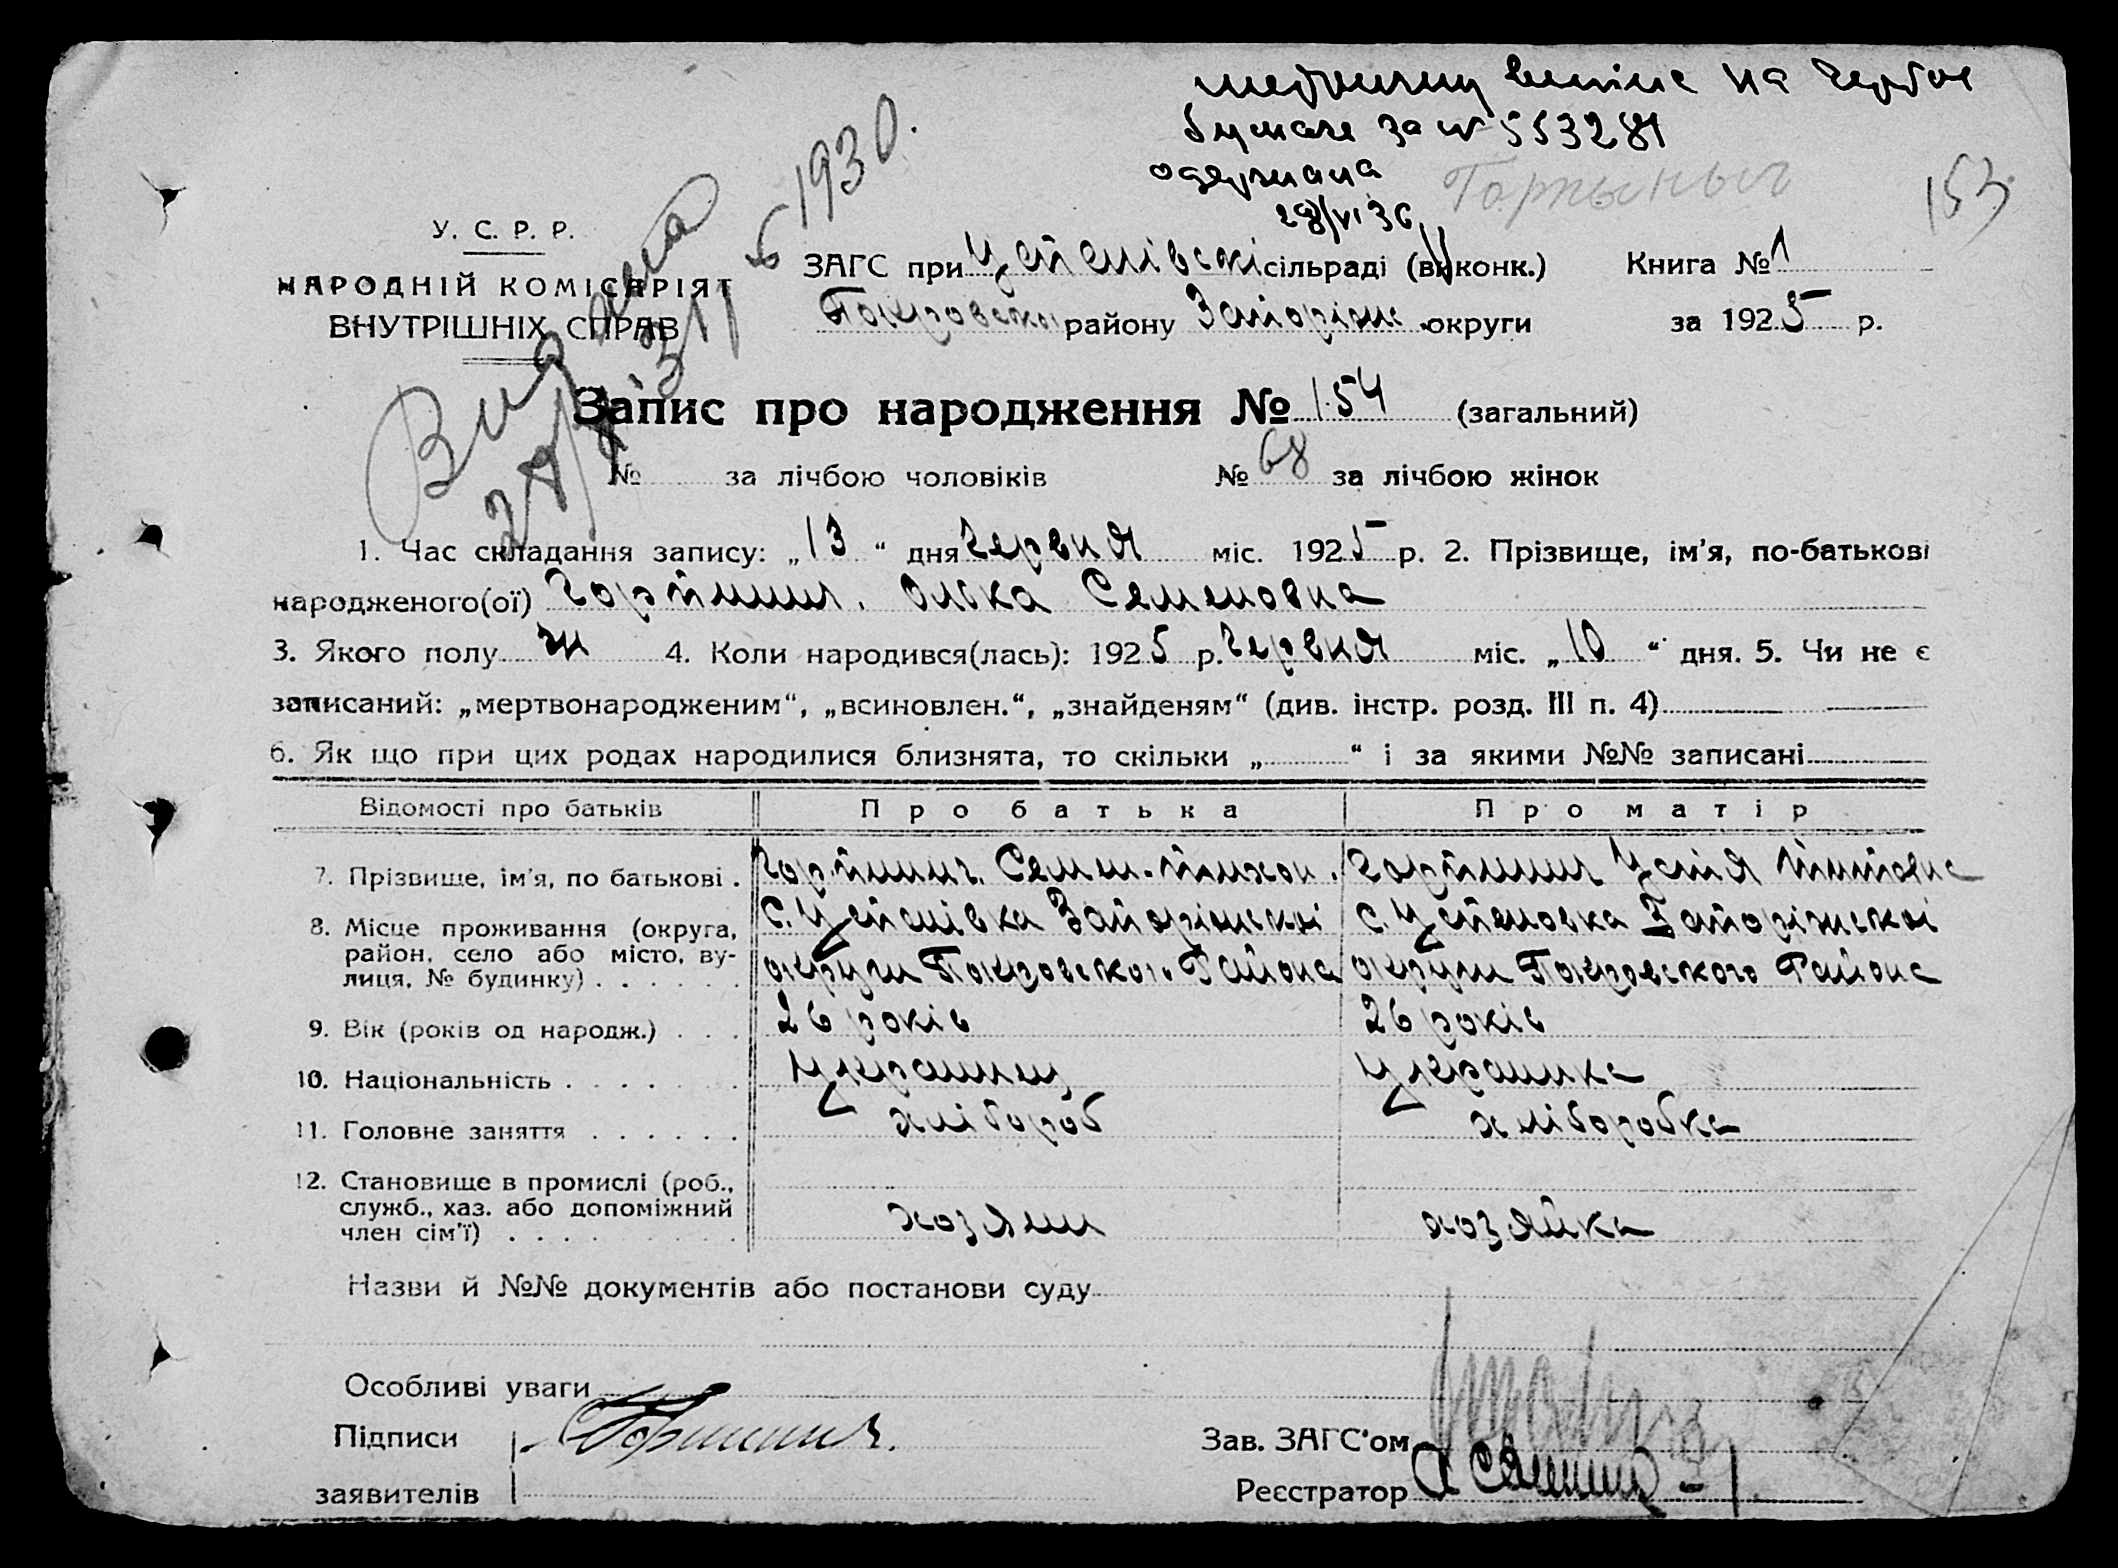 метричну випись на гербов
бумаге за № 553281
одержана
28/VI 36
Гортыныч
153
Видана
6 1930.
У. С. Р. Р.
НАРОДНІЙ КОМІСАРІЯТ
ВНУТРІШНІХ СПРАВ
ЗАГС при Успенівскі сільраді (виконк.)
Книга № 1
Покровском району Запоріж округи
за 1925 р.
Запис про народження № 154 (загальний)
№ за лічбою чоловіків № 68 за лічбою жінок
1. Час складання запису: „13“ дня червня міс. 1925 р. 2. Прізвище, ім'я, по-батькові
народженого(ої) Гортинич. Олька Семеновна
3. Якого полу ж 4. Коли народився(лась): 1925 р. червня міс. „10“ дня. 5. Чи не є
записаний: „мертвонародженим“, „всиновлен.“, „знайденям“ (див. інстр. розд. III п. 4)
6. Як що при цих родах народилися близнята, то скільки „ “ і за якими №№ записані
Відомості про батьків Про батька Про матір
7. Прізвище, ім'я, по батькові . Гортинич. Семен. Тихон. Гортинич Устія Титовна
8. Місце проживання (округа, район, село або місто, вулиця, № будинку) . . . . . .
с. Успенівка Запоріжскої с. Успеновка Запоріжскої
округи Покровского Района округи Покровского Района
9. Вік (років од народж.) . . . 26 років 26 років
10. Національність . . . . . . . українец українка
11. Головне заняття . . . . . . хлібороб хлібо­робка
12. Становище в промислі (роб.,
служб., хаз. або допоміжний
член сім'ї) . . . . . . . . . хозяин хозяйка
Назви й №№ документів або постанови суду
Особливі уваги
Підписи Гортинич.
заявителів
Зав. ЗАГС'ом
Реєстратор